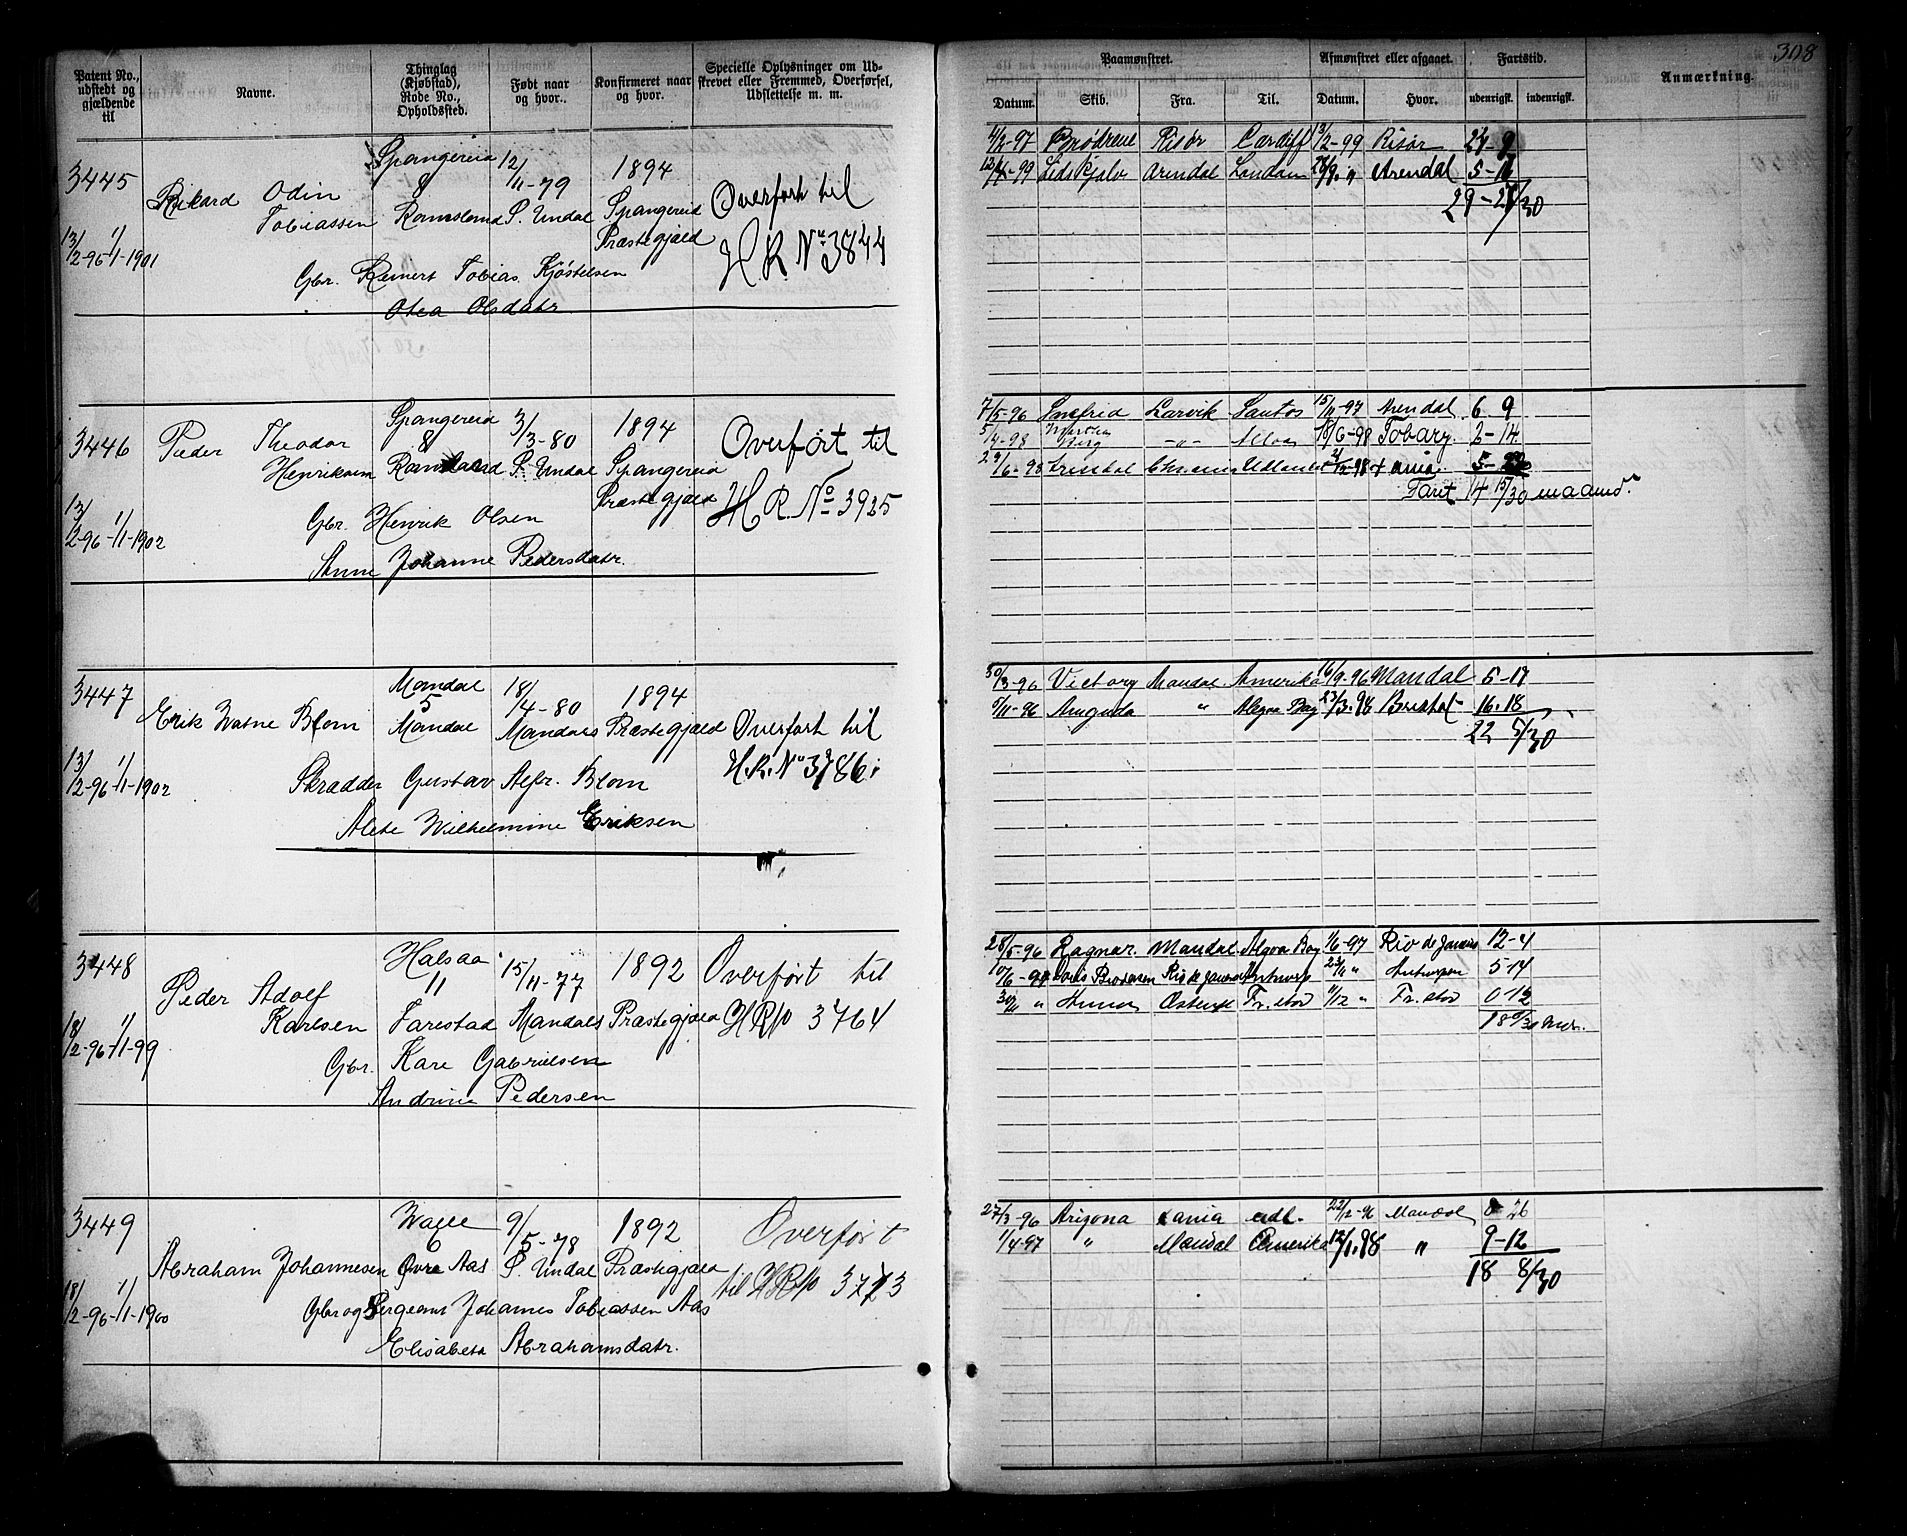 Patent No., udstedt og gjældende til
Navne.
Thinglag (Kjøbstad), Rode No., Opholdssted.
Født naar og hvor.
Konfirmeret naar og hvor.
Specielle Oplysninger om Udskrevet eller Fremmed, Overførsel, Udslettelse m. m.
3445 Spangereid 12/11-79 1894
Rikard Odin 8 Overført til
Tobiassen Ramsland S. Undal Spangereid
13/2-96 1/1-1901 Præstegjæld H. R. No 3844
Gbr. Reinert Tobias Kjøstelsen
Olea Olsdatr.
3446 Spangereid 3/3-80 1894
Peder Theodor 8 Overført til
Henriksen Ramsland S. Undal Spangereid
13/2-96 1/1-1902 Præstegjæld H. R. No 3925
Gbr. Henrik Olsen
Anne Johanne Pedersdatr.
3447 Mandal 18/4-80 1894
Erik Watne Blom 5 Mandal Mandals Præstegjæld Overført til
13/2-96 1/1-1902 H. R. No 3786
Skrædder Gustav Alfr. Blom
Alete Wilhelmine Eriksen
3448 Halsaa 15/11-77 1892 Overført til
Peder Adolf 11
Karlsen Tarestad Mandals Præstegjæld H R No 3764
18/2-96 1/1-99
Gbr. Kare Gabrielsen
Andrine Pedersen
3449 9/5-78 1892 Overført
Abraham Johannesen 6 Øvre Aas S. Undal Præstegjæld til H R No
18/2-96 1/1-1900 Gbr og Sergeant Johannes Tobiassen Aas
Elisabeth Abrahamsdatr.
308
Paamønstret.
Afmønstret eller afgaaet.
Fartstid.
Anmærkning.
Datum. Skib. Fra. Til. Datum. Hvor. udenrigsk. indenrigsk.
4/2-97 Brødrene Risør Cardiff 13/2-99 Risør 24-9
12/4-99 Lidskjalv Arendal London Arendal
29-27/30
7/5-96 Larvik Santos 15/11-97 Arendal 6 9
5/4-98 Martha Berg -"- Alloa 18/6-98 Tobary. 2-14
29/6-98
Faret 14 15/30 maaned.
30/3-96 Victory Mandal Amerika 16/9-96 Mandal 5-17
5/11-96 " Algoa Bay 23/3.98 Bristol 16.18
22 5/30
28/5-96 Ragnar. Mandal Algoa Bay 1/6-97 Rio de Janeiro 12-4
Brødrene Rio de Janeiro Antwerp " Antwerpen 5 14
30/11 " Anna Ostende Fr.stad 11/12 " Fr. stad 0 12
27/3-96 Arizona udl. 22/12-96 Mandal 8 26
1/4-97 " Mandal Amerika 12/1.98 " 9-12
18 8/30